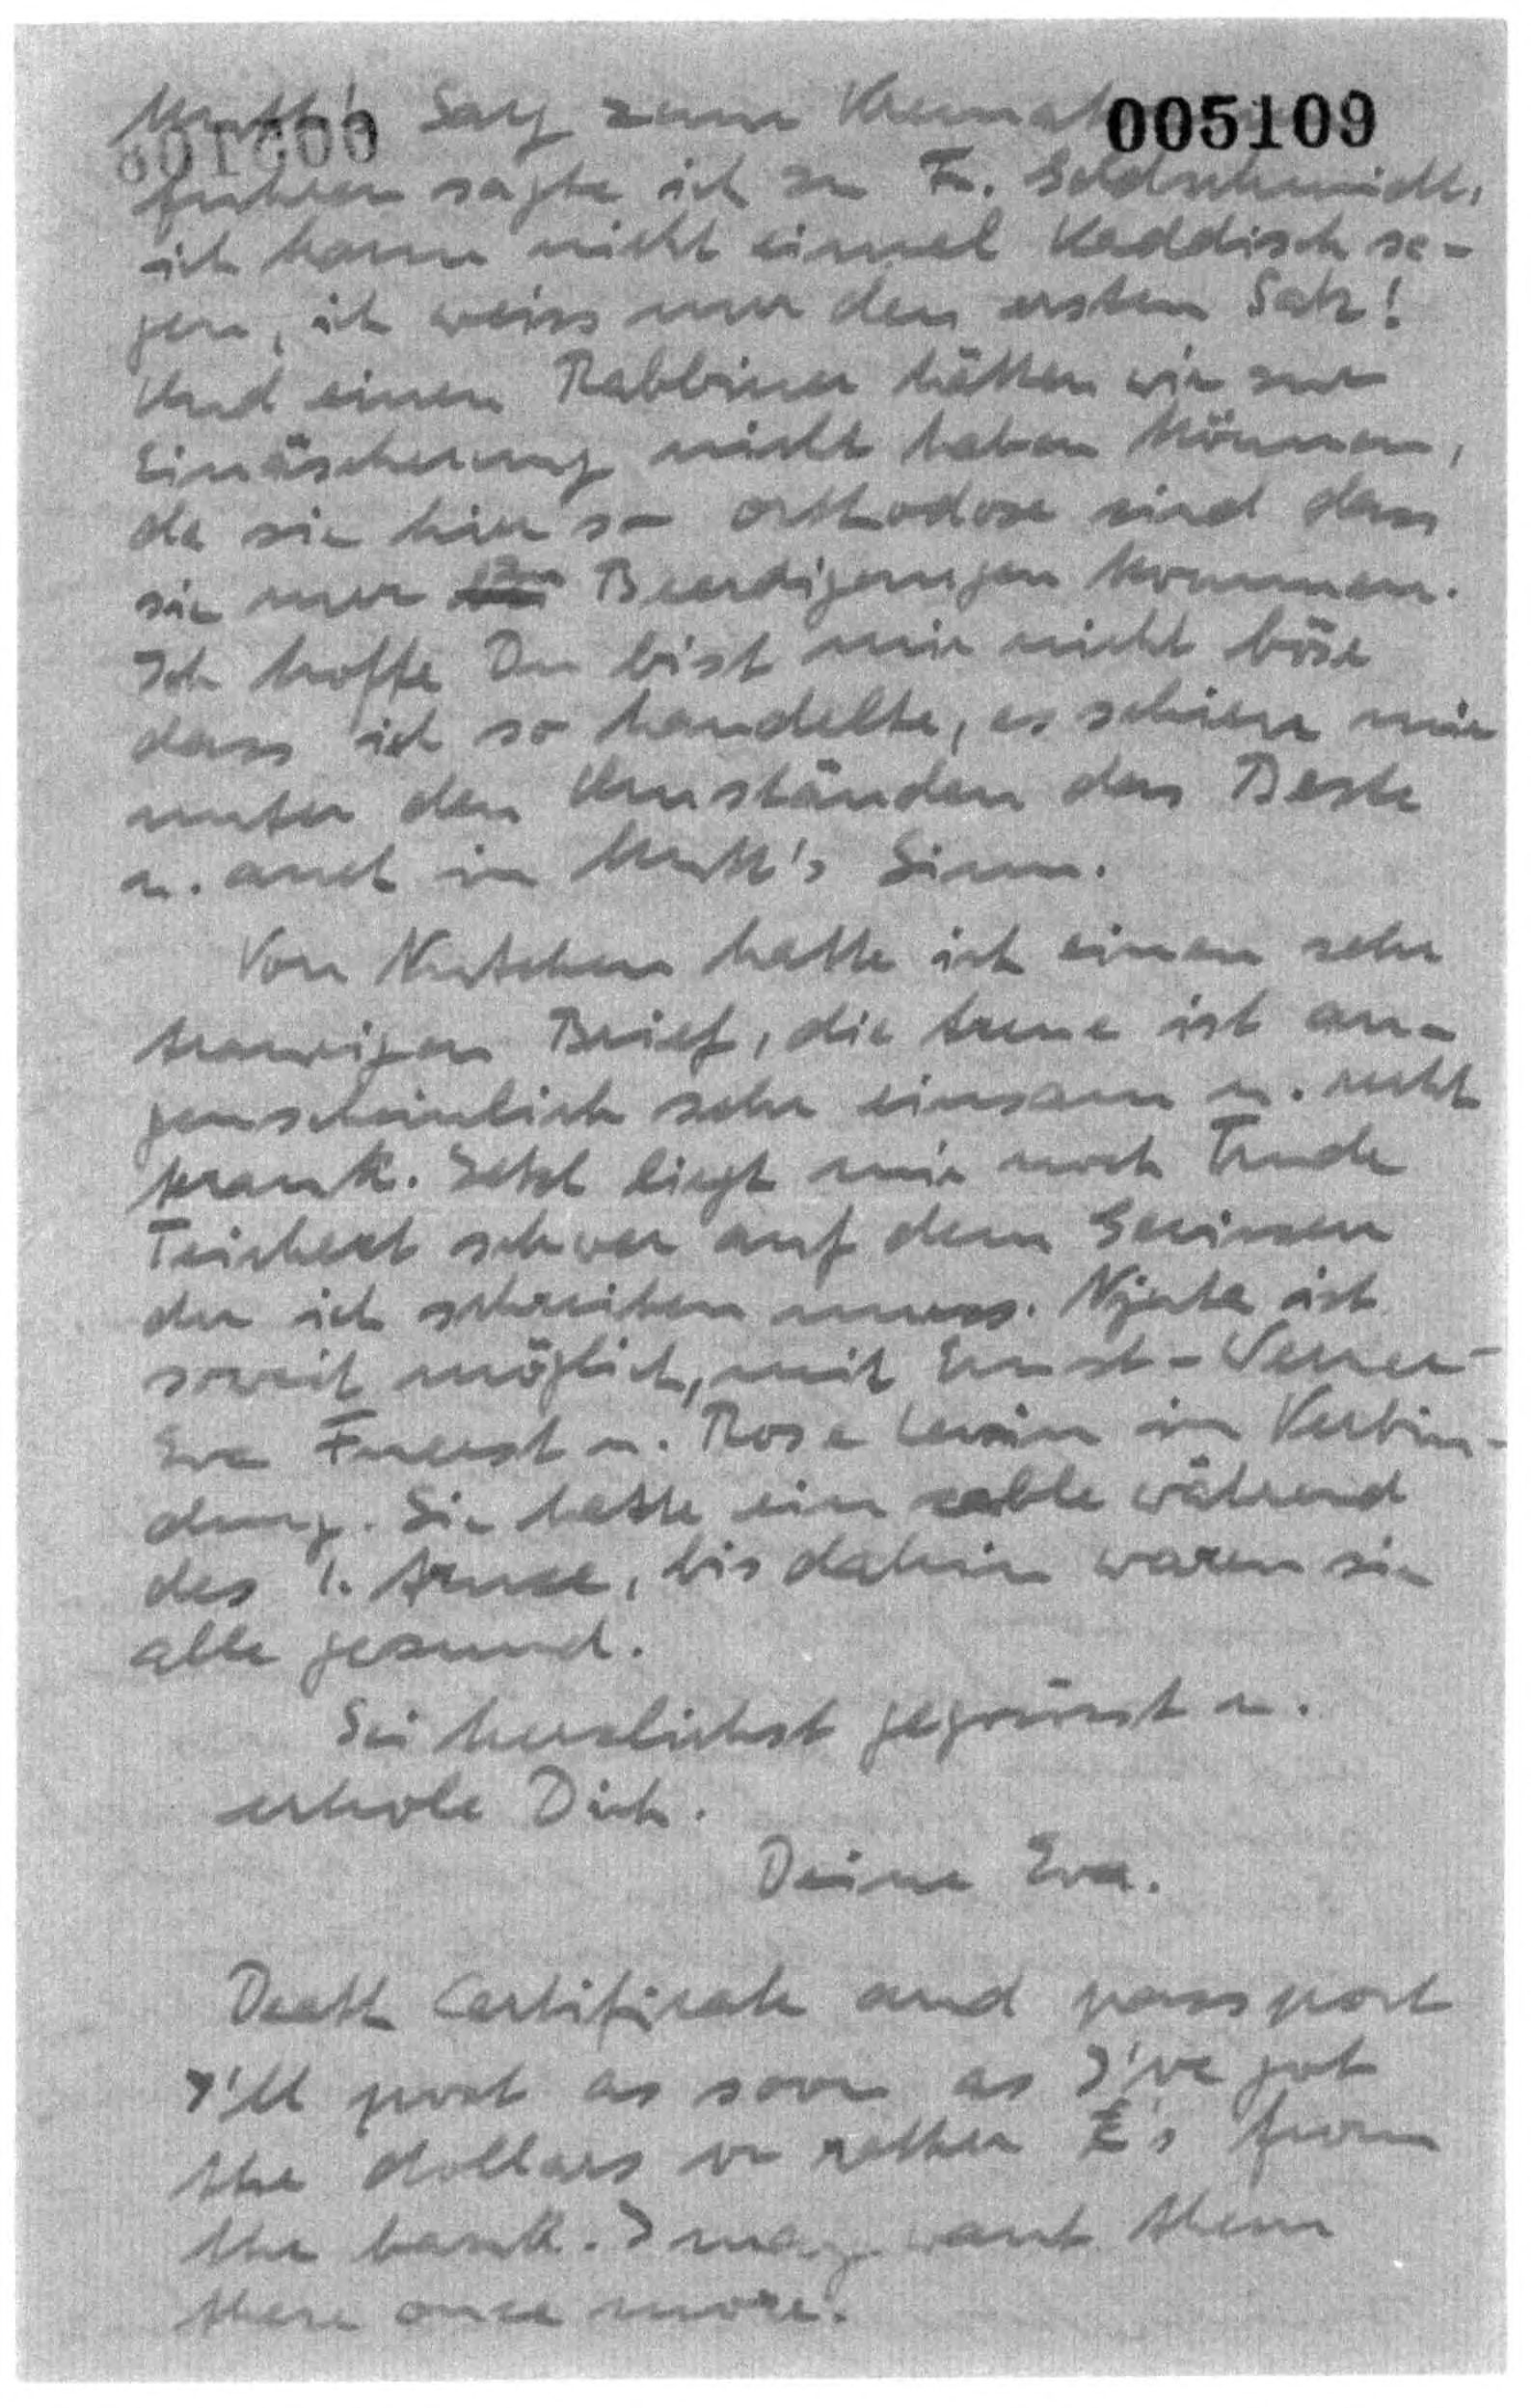 005109
Mutt's Sarg zum
fuhren sagte ich zu Fr. Goldschmidt,
ich kann nicht einmal Kaddisch sa-
gen, ich weiss nur den ersten Satz!
Und einen Rabbiner hätten wir zur
Einäscherung nicht haben können,
da sie hier so orthodox sind dass
sie nur zu Beerdigungen kommen.
Ich hoffe Du bist mir nicht böse
dass ich so handelte, es schien mir
unter den Umständen das Beste
u. auch in Mutt's Sinn.
Von Nutchen hatte ich einen sehr
traurigen Brief, die Arme ist au-
genscheinlich sehr einsam u. recht
krank. Jetzt liegt mir noch Trude
Teichert schwer auf dem Gewissen
der ich schreiben muss. Njuta ist
soweit möglich, mit Ernst-Werner-
Eva Fuerst u. Rose Lewin in Verbin-
dung. Sie hatte ein cable während
des 1. truce, bis dahin waren sie
alle gesund.
Sei herzlichst gegrüsst u.
erhole Dich.
Deine Eva.
Death Certificate and passport
I'll post as soon as I've got
the dollars or rather £'s from
the bank. I may want them
there once more.